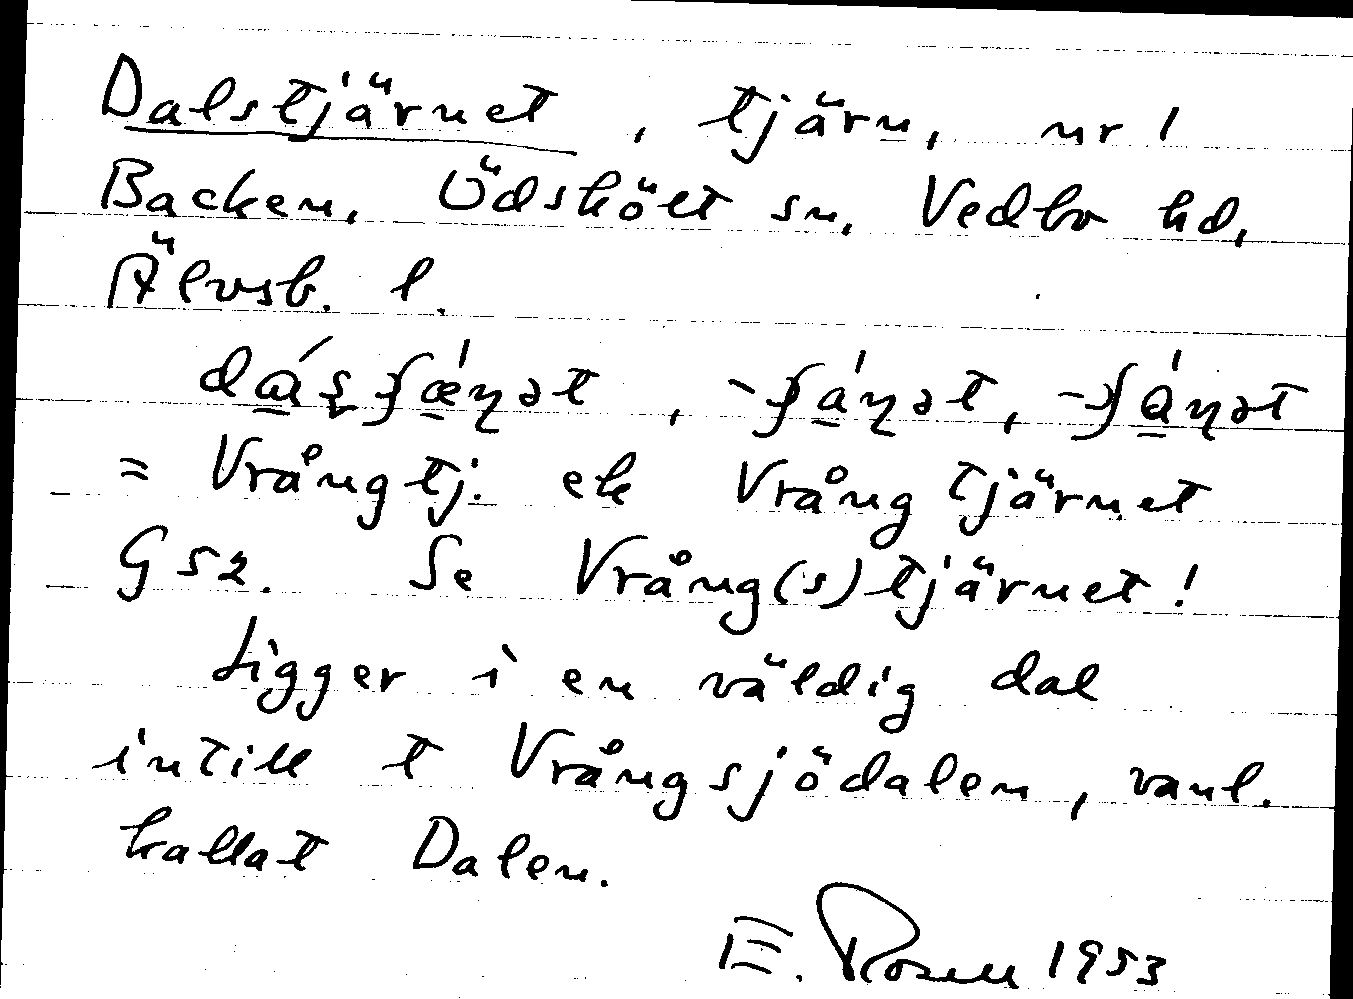 Dalstjärnet, tjärn, nr 1
Backen, Ödskölt sn, Vedbo hd,
Älvsb. l.
= Vrångtj. ek Vrångtjärnet
G52. Se Vrång(s)tjärnet!
Ligger i en väldig dal
intill t Vrångsjödalen, vanl.
kallat Dalen.
E. Rosell 1953